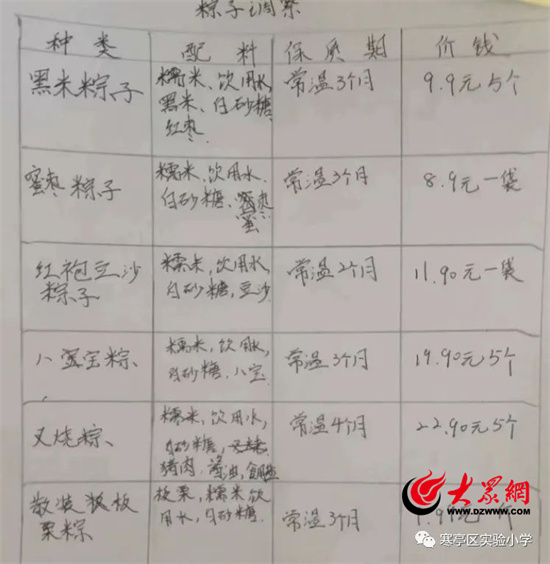 粽子调察
种类 配料 保质期 价钱
黑米粽子 糯米、饮用水 常温3个月 9.9元5个
黑米、白砂糖
红枣
蜜枣粽子 糯米、饮用水 常温3个月 8.9元一袋
白砂糖、蜜枣
蜜
红袍豆沙 糯米,饮用水, 常温2个月 11.90元一袋
粽子 白砂糖,豆沙
八宝粽、 糯米,饮用水, 常温3个月 19.90元5个
白砂糖、八宝
叉烧粽、 糯米,饮用水, 常温4个月 22.90元5个
白砂糖,
猪肉,酱油,食用盐
散装板 板栗,糯米饮 常温3个月
栗粽 用水,白砂糖
大众網
WWW.DZWWW.COM
寒亭区实验小学